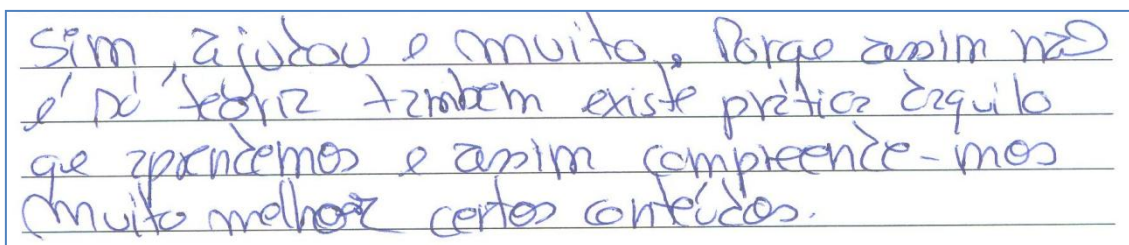 Sim, ajudou e muito. Porqe assim não
é só teoria também existe prática daquilo
qe aprendemos e assim compreende-mos
muito melhor certos conteúdos.